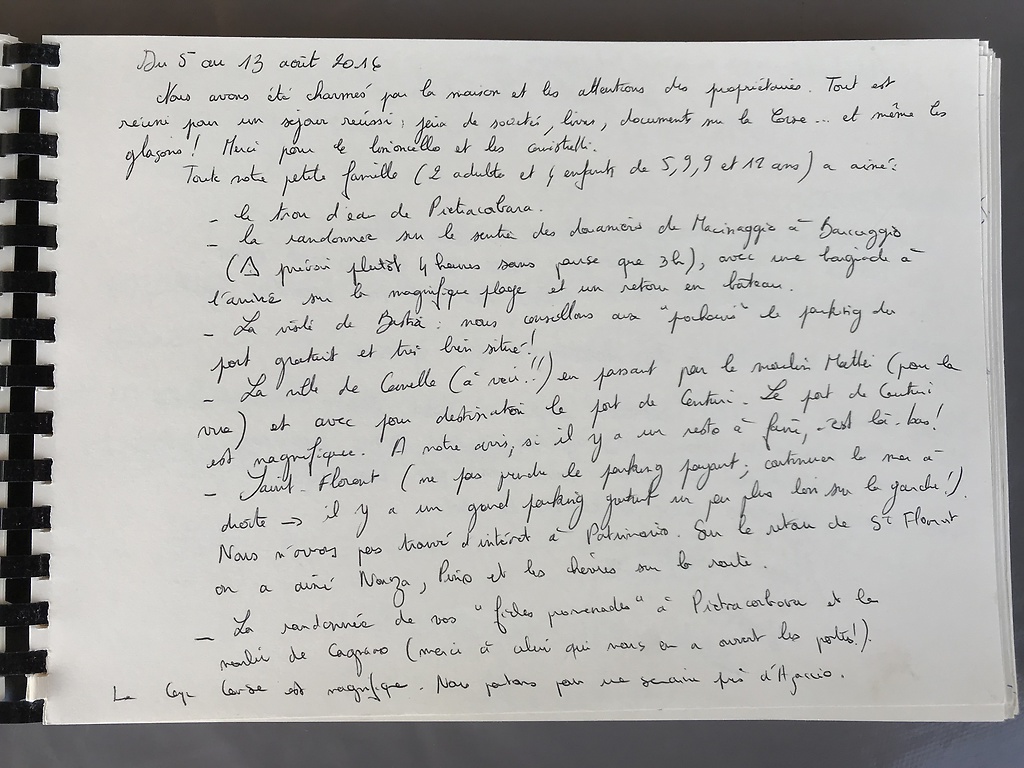 Du 5 au 13 août 2016
Nous avons été charmés par la maison et les attentions des propriétaires. Tout est
réuni pour un séjour réussi : jeux de société, livres, documents sur la Corse... et même les
glaçons ! Merci pour le limoncello et les canistrelli.
Toute notre petite famille (2 adultes et 4 enfants de 5, 9, 9 et 12 ans) a aimé :
- le trou d'eau de Pietracorbara.
- la randonnée sur le sentier des douaniers de Macinaggio à Barcaggio
(⚠ prévoir plutôt 4 heures sans pause que 3h), avec une baignade à
l'arrivée sur la magnifique plage et un retour en bateau.
- La visite de Bastia : nous conseillons aux "pochains" le parking du
port gratuit et très bien situé !
- La ville de Canelle (à voir !!) en passant par le moulin Mattei (pour la
vue) et avec pour destination le port de Centuri. Le port de Centuri
est magnifique. A notre avis, si il y a un resto à faire, c'est là-bas !
- Saint-Florent (ne pas prendre le parking payant ; continuer la mer à
droite → il y a un grand parking gratuit un peu plus loin sur la gauche !).
Nous n'avons pas trouvé d'intérêt à Patrimonio. Sur le retour de St Florent
on a aimé Nonza, Pino et les chèvres sur la route.
- La randonnée de vos "fiches promenades" à Pietracorbara et le
moulin de Cagnano (merci à celui qui nous en a ouvert les portes !).
Le Cap Corse est magnifique. Nous partons pour une semaine près d'Ajaccio.